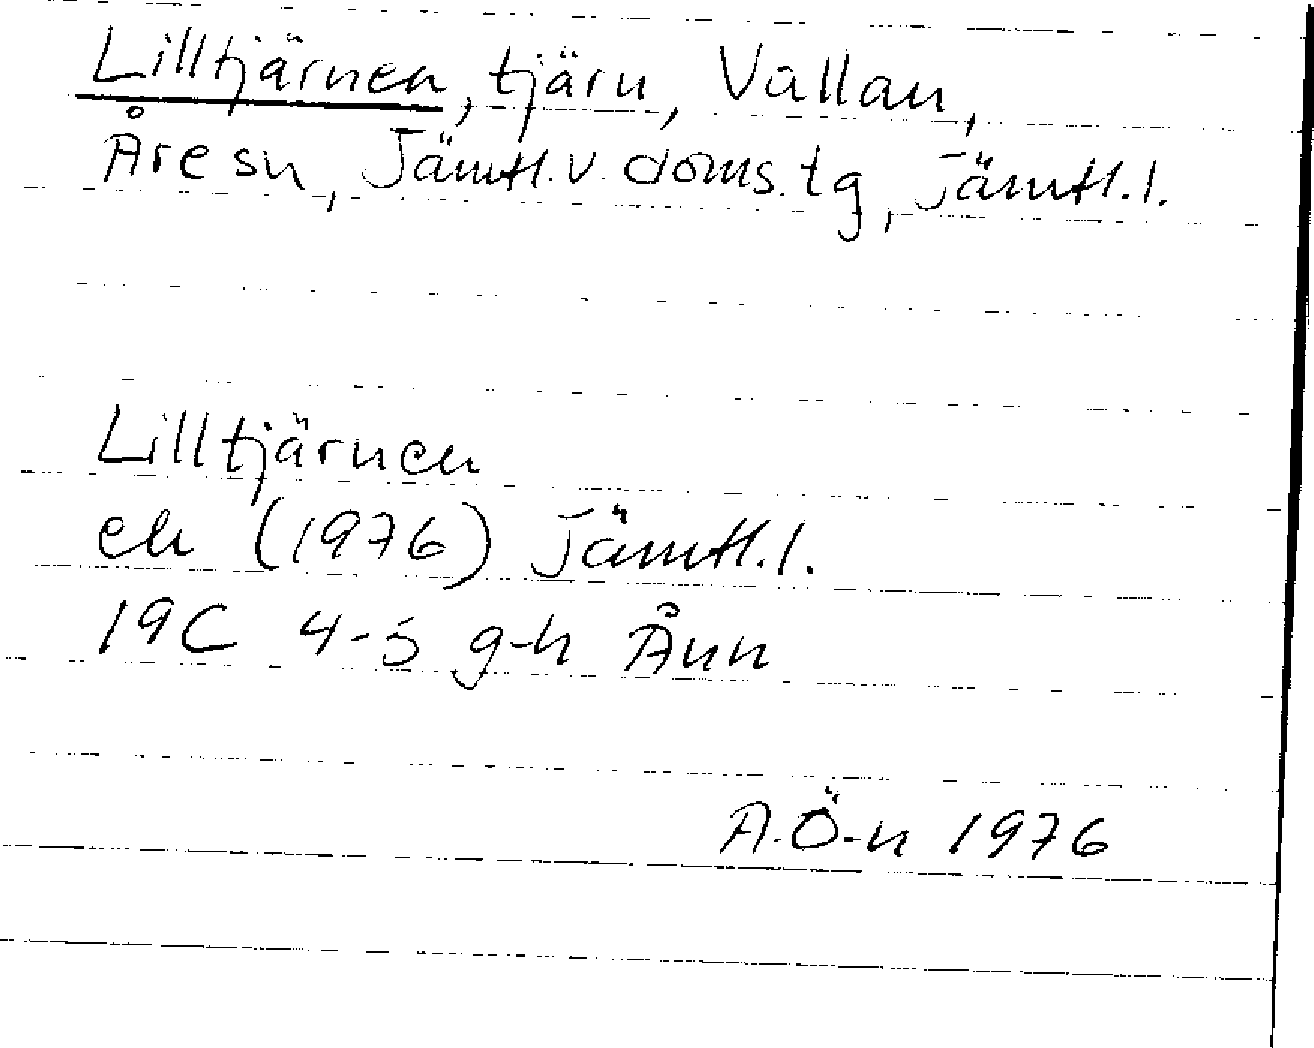 Lilltjärnen, tjärn, Vallan,
Åre sn, Jämtl. v. doms. tg, Jämtl. l.
Lilltjärnen
ek (1976) Jämtl. l.
19C 4-5 g-h Ånn
A.Ö-n 1976